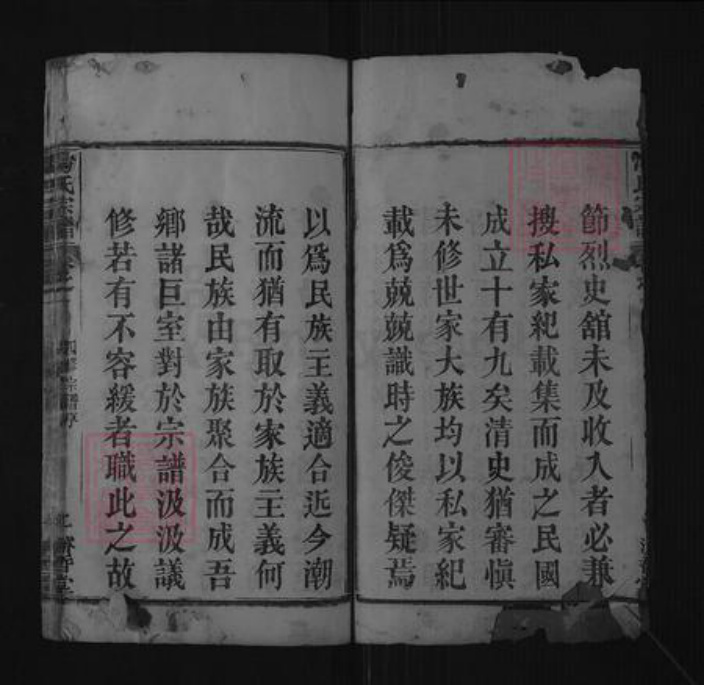 節烈史館未及收入者必兼
搜私家紀載集而成之民國
成立十有九矣清史猶審慎
未修世家大族均以私家紀
載爲兢兢識時之俊傑疑焉
以爲民族主義適合近今潮
流而猶有取於家族主義何
哉民族由家族聚合而成吾
鄉諸巨室對於宗譜汲汲議
修若有不容緩者職此之故
氏宗譜
修宗譜序